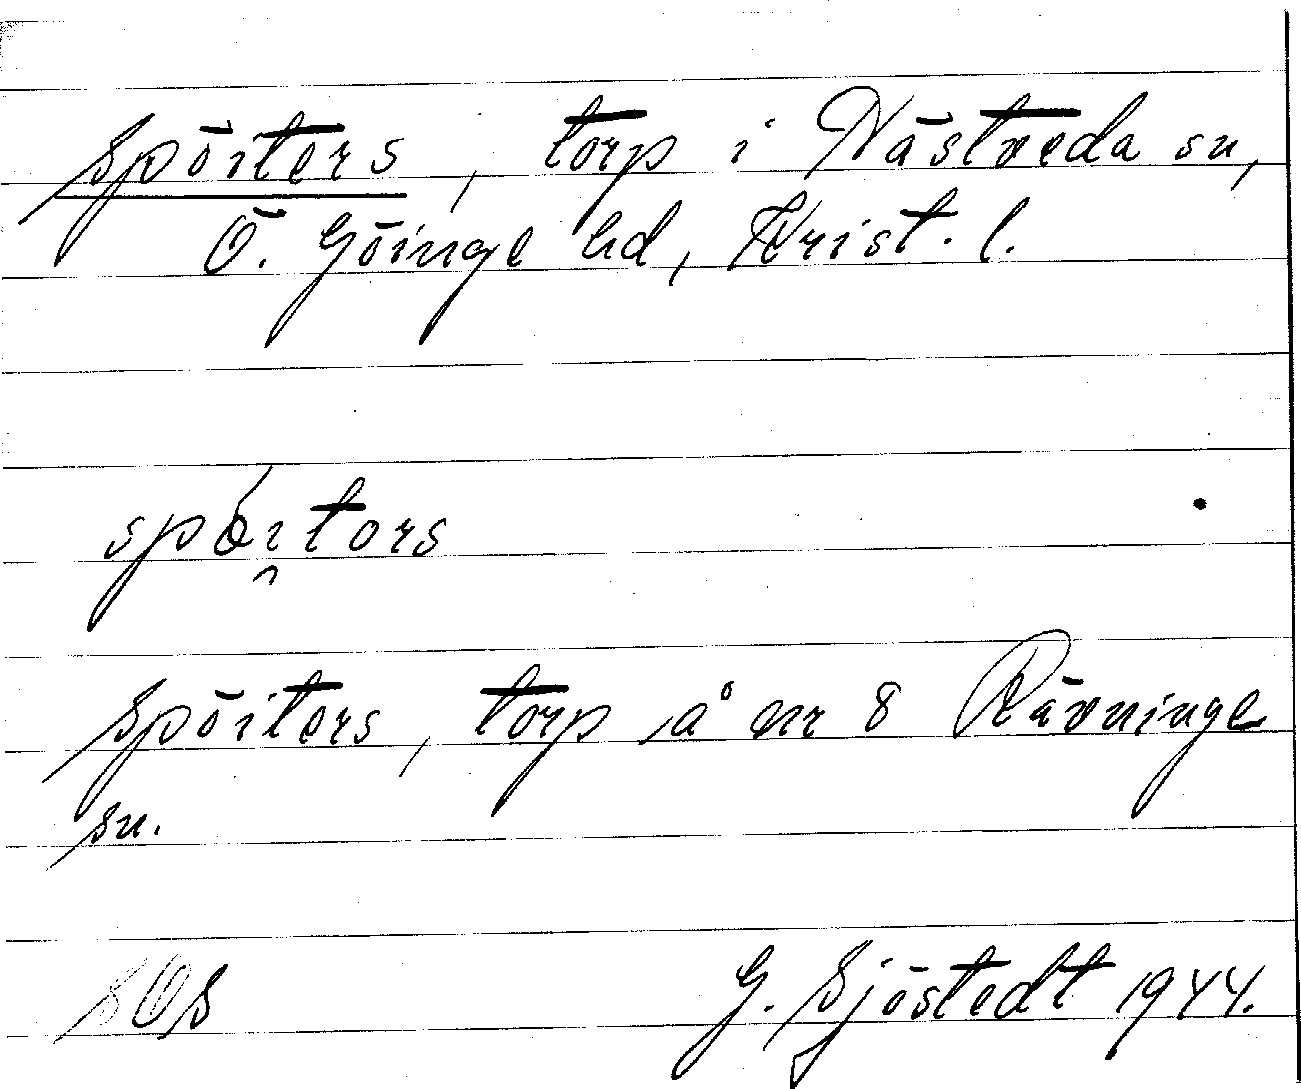 Spöiters, torp i Nästveda sn,
Ö. Göinge hd, Krist. l.
spói̯tors
Spöiters, torp å nr 8 Rävninge
sn.
SOS G. Sjöstedt 1944.